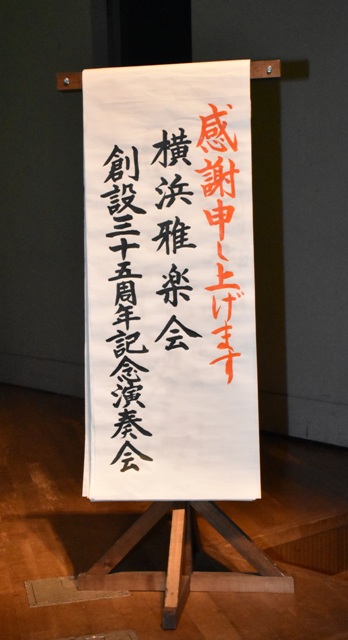 感謝申し上げます
横浜雅楽会
創設三十五周年記念演奏会